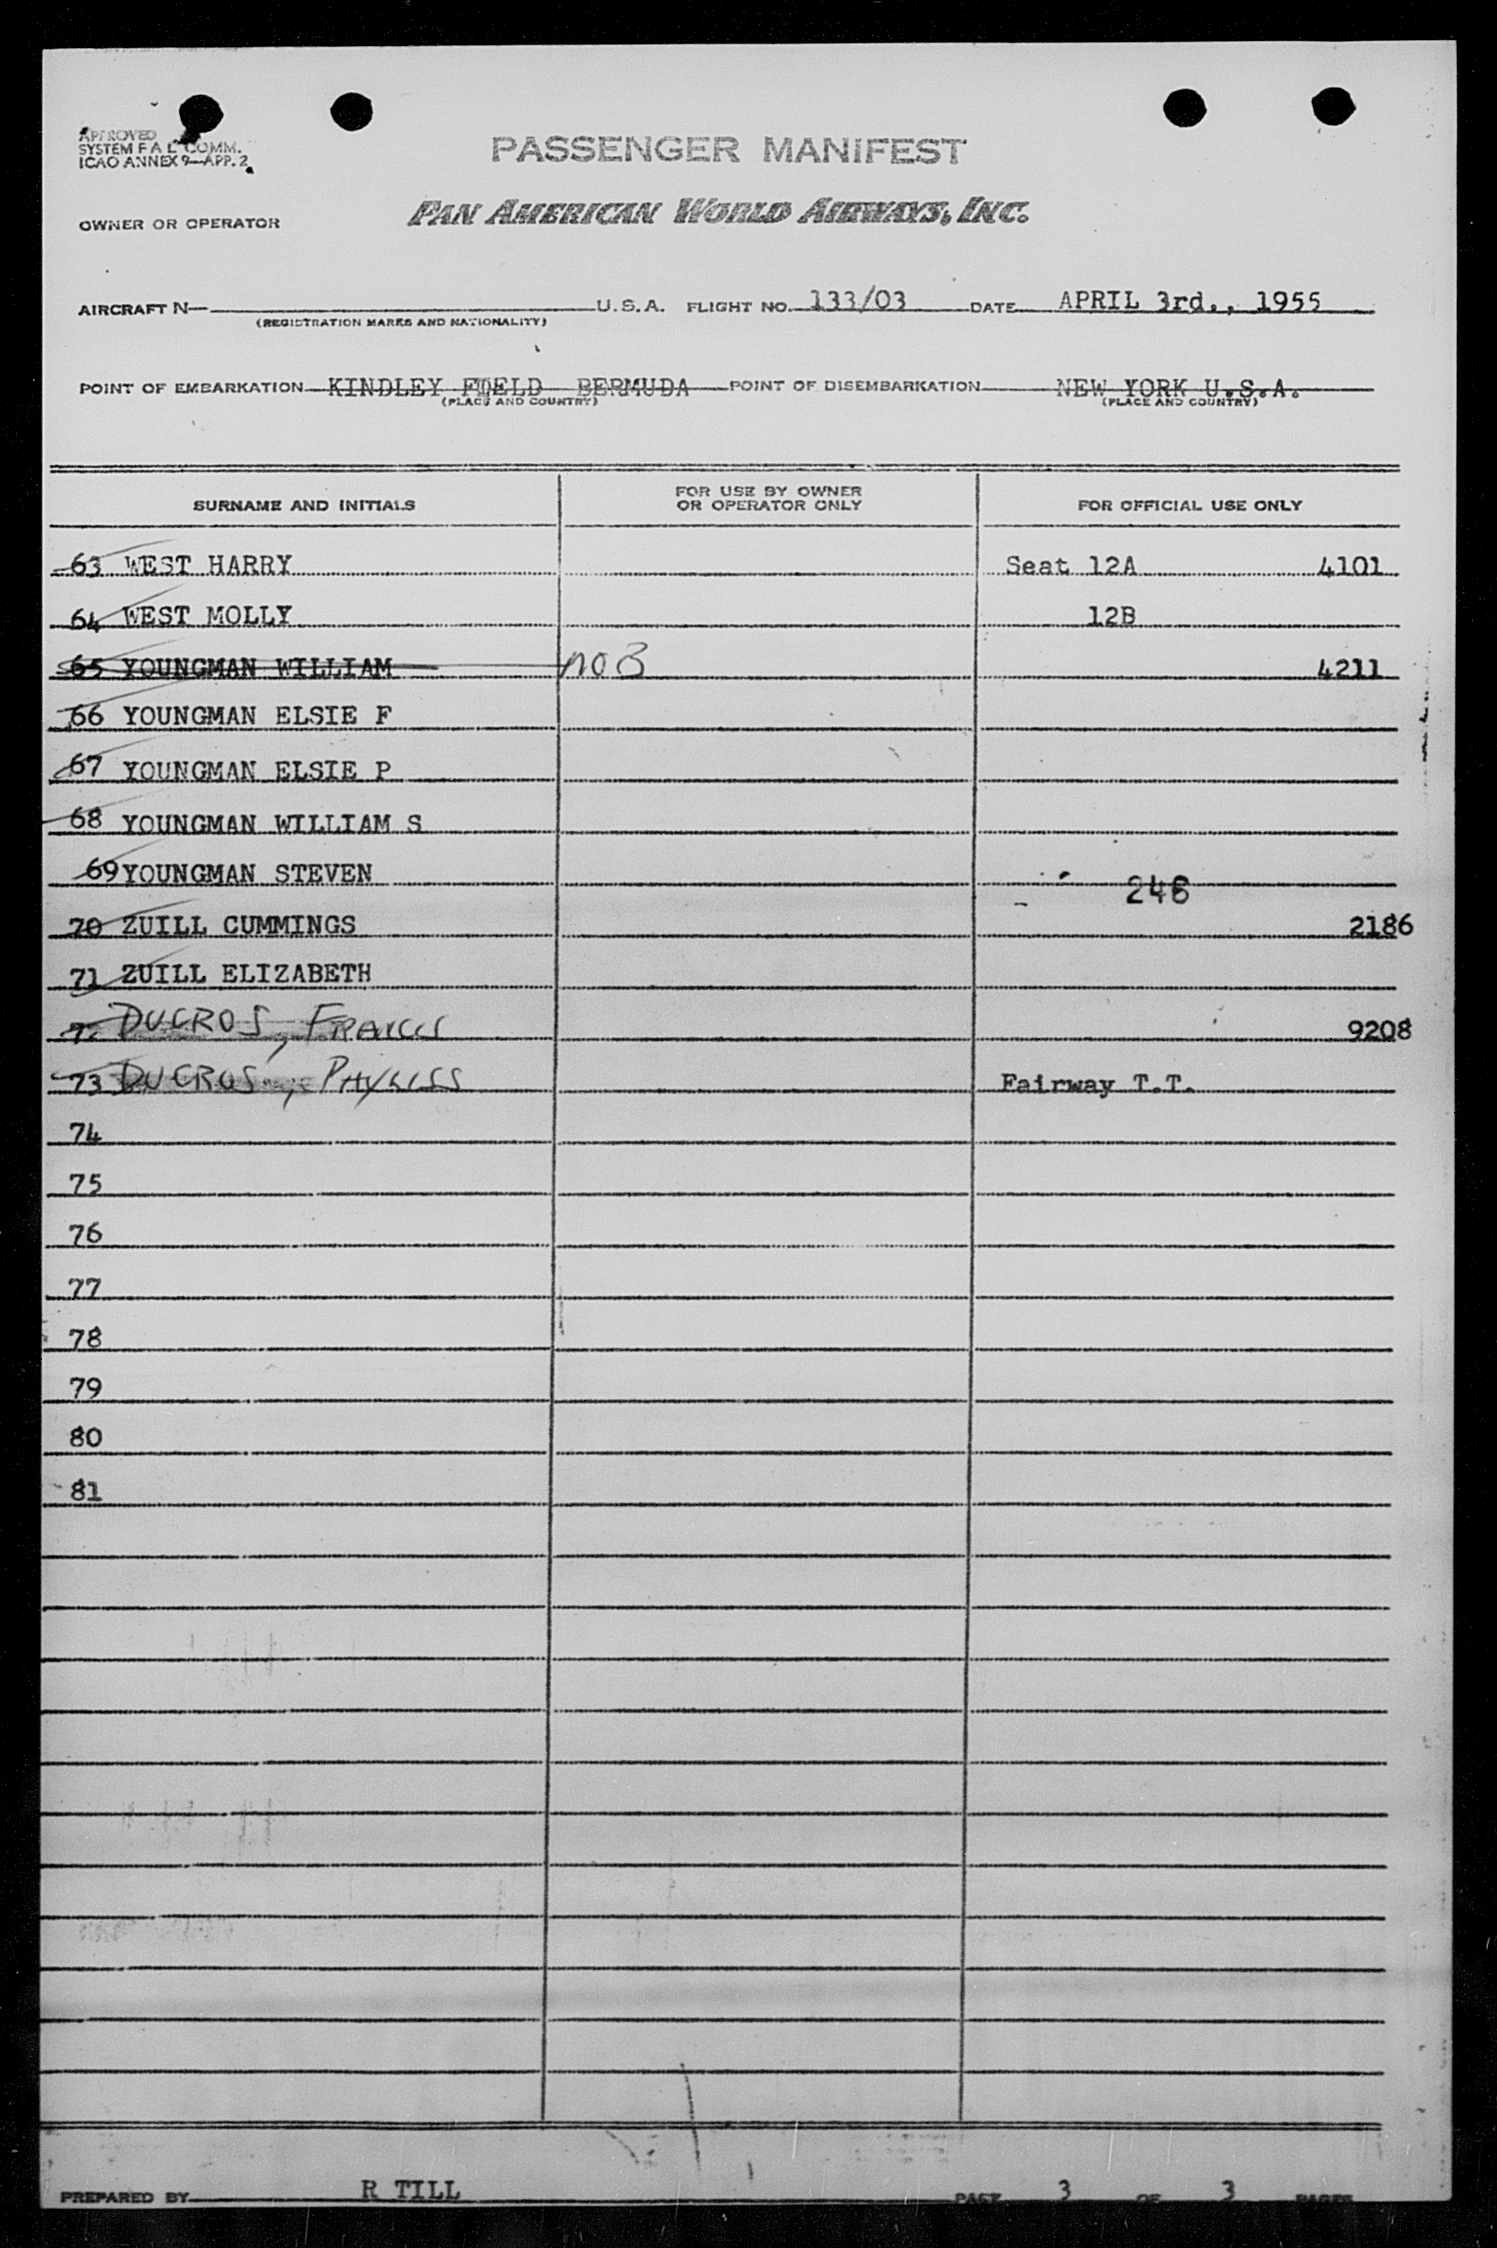 APPROVED
SYSTEM F A L COMM.
ICAO ANNEX 9—APP. 2
PASSENGER MANIFEST
OWNER OR OPERATOR PAN AMERICAN WORLD AIRWAYS, INC.
AIRCRAFT N— U.S.A. FLIGHT NO. 133/03 DATE APRIL 3rd., 1955
(REGISTRATION MARKS AND NATIONALITY)
POINT OF EMBARKATION KINDLEY FIELD BERMUDA POINT OF DISEMBARKATION NEW YORK U.S.A.
(PLACE AND COUNTRY) (PLACE AND COUNTRY)
SURNAME AND INITIALS FOR USE BY OWNER OR OPERATOR ONLY FOR OFFICIAL USE ONLY
63 WEST HARRY Seat 12A 4101
64 WEST MOLLY 12B
65 YOUNGMAN WILLIAM NOB 4211
66 YOUNGMAN ELSIE F
67 YOUNGMAN ELSIE P
68 YOUNGMAN WILLIAM S
69 YOUNGMAN STEVEN
246
70 ZUILL CUMMINGS 2186
71 ZUILL ELIZABETH
DUCROS, FRANCIS 9208
73 DUCROS, PHYLLSS Fairway T.T.
74
75
76
77
78
79
80
81
PREPARED BY R TILL PAGE 3 OF 3 PAGES